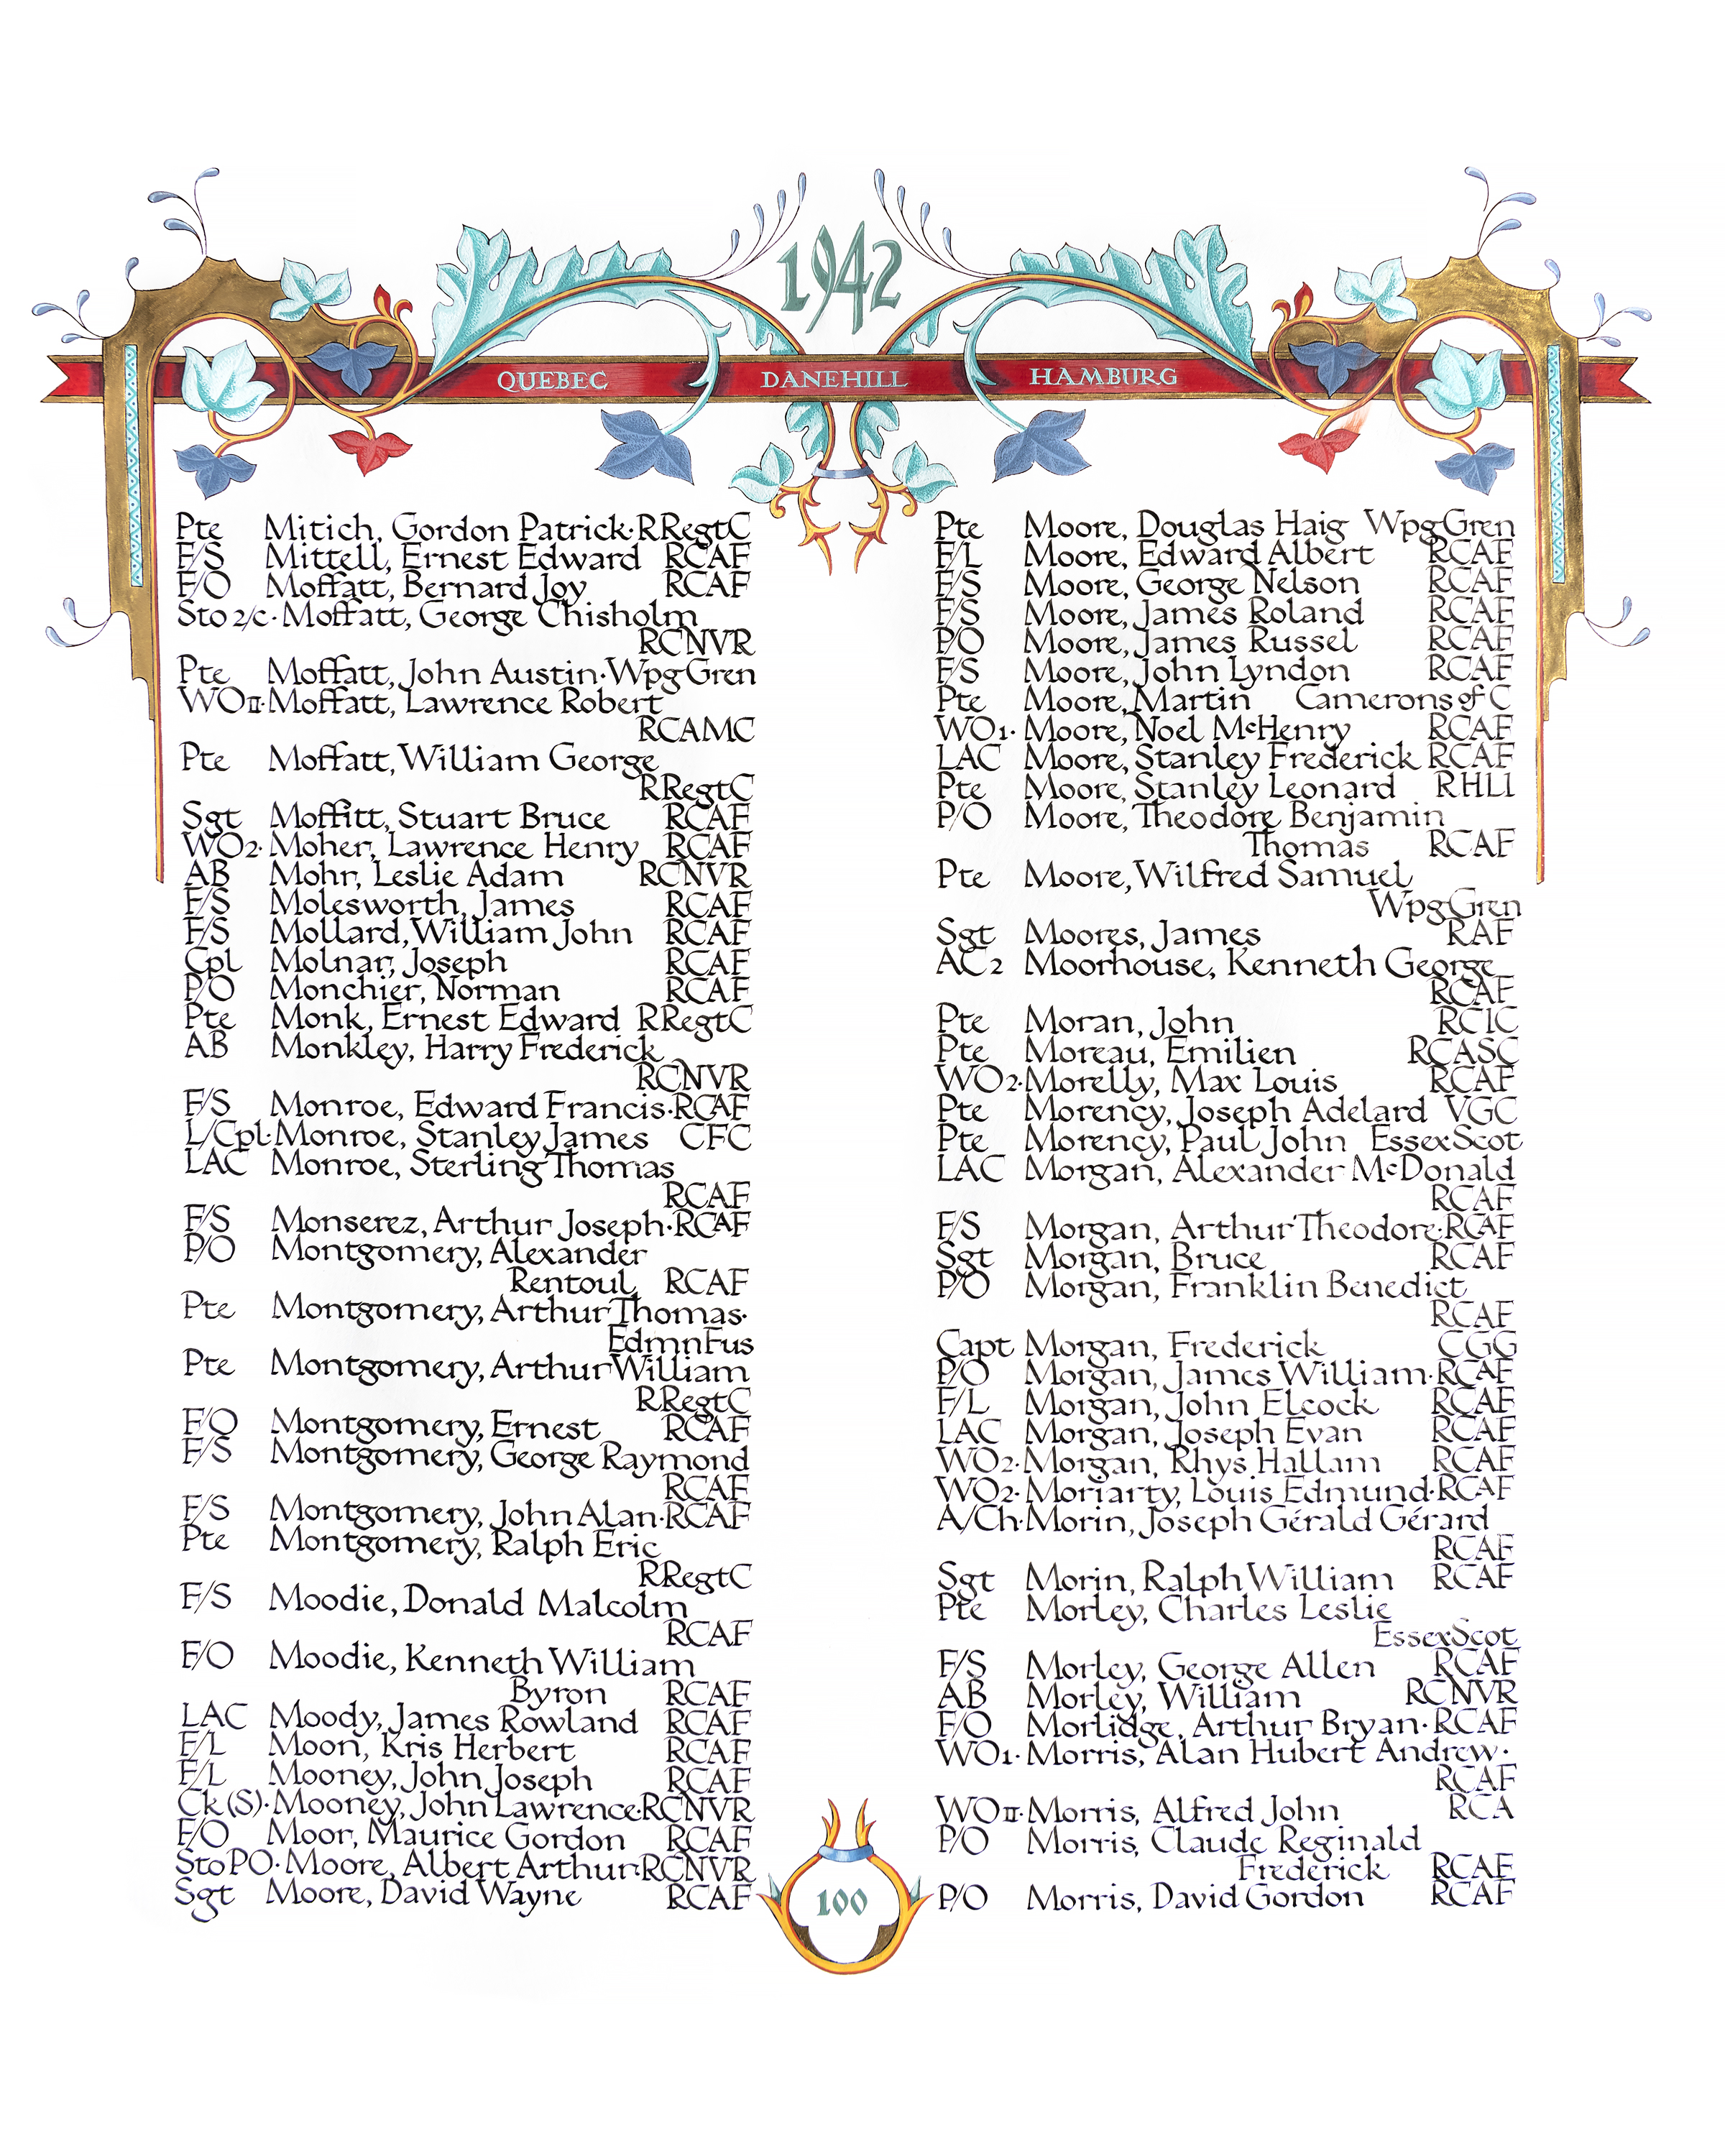 1942
QUEBEC DANEHILL HAMBURG
Pte Mitich, Gordon Patrick·RRegtC
F/S Mittell, Ernest Edward RCAF
F/O Moffatt, Bernard Joy RCAF
Sto 2/c·Moffatt, George Chisholm
RCNVR
Pte Moffatt, John Austin·WpgGren
WOII·Moffatt, Lawrence Robert
RCAMC
Pte Moffatt, William George
RRegtC
Sgt Moffitt, Stuart Bruce RCAF
WO2·Moher, Lawrence Henry RCAF
AB Mohr, Leslie Adam RCNVR
F/S Molesworth, James RCAF
F/S Mollard, William John RCAF
Cpl Molnar, Joseph RCAF
P/O Monchier, Norman RCAF
Pte Monk, Ernest Edward RRegtC
AB Monkley, Harry Frederick
RCNVR
F/S Monroe, Edward Francis·RCAF
L/Cpl·Monroe, Stanley James CFC
LAC Monroe, Sterling Thomas
RCAF
F/S Monserez, Arthur Joseph·RCAF
P/O Montgomery, Alexander
Rentoul RCAF
Pte Montgomery, Arthur Thomas·
EdmnFus
Pte Montgomery, Arthur William
RRegtC
F/O Montgomery, Ernest RCAF
F/S Montgomery, George Raymond
RCAF
F/S Montgomery, John Alan·RCAF
Pte Montgomery, Ralph Eric
RRegtC
F/S Moodie, Donald Malcolm
RCAF
F/O Moodie, Kenneth William
Byron RCAF
LAC Moody, James Rowland RCAF
F/L Moon, Kris Herbert RCAF
F/L Mooney, John Joseph RCAF
Ck(S)·Mooney, John Lawrence·RCNVR
F/O Moor, Maurice Gordon RCAF
StoPO·Moore, Albert Arthur·RCNVR
Sgt Moore, David Wayne RCAF
Pte Moore, Douglas Haig WpgGren
F/L Moore, Edward Albert RCAF
F/S Moore, George Nelson RCAF
F/S Moore, James Roland RCAF
P/O Moore, James Russel RCAF
F/S Moore, John Lyndon RCAF
Pte Moore, Martin Camerons of C
WO1·Moore, Noel McHenry RCAF
LAC Moore, Stanley Frederick RCAF
Pte Moore, Stanley Leonard RHLI
P/O Moore, Theodore Benjamin
Thomas RCAF
Pte Moore, Wilfred Samuel
WpgGren
Sgt Moores, James RAF
AC2 Moorhouse, Kenneth George
RCAF
Pte Moran, John RCIC
Pte Moreau, Emilien RCASC
WO2·Morelly, Max Louis RCAF
Pte Morency, Joseph Adelard VGC
Pte Morency, Paul John EssexScot
LAC Morgan, Alexander McDonald
RCAF
F/S Morgan, Arthur Theodore·RCAF
Sgt Morgan, Bruce RCAF
P/O Morgan, Franklin Benedict
RCAF
Capt Morgan, Frederick CGG
P/O Morgan, James William·RCAF
F/L Morgan, John Elcock RCAF
LAC Morgan, Joseph Evan RCAF
WO2·Morgan, Rhys Hallam RCAF
WO2·Moriarty, Louis Edmund·RCAF
A/Ch·Morin, Joseph Gérald Gérard
RCAF
Sgt Morin, Ralph William RCAF
Pte Morley, Charles Leslie
EssexScot
F/S Morley, George Allen RCAF
AB Morley, William RCNVR
F/O Morlidge, Arthur Bryan·RCAF
WO1·Morris, Alan Hubert Andrew·
RCAF
WOII·Morris, Alfred John RCA
P/O Morris, Claude Reginald
Frederick RCAF
P/O Morris, David Gordon RCAF
100